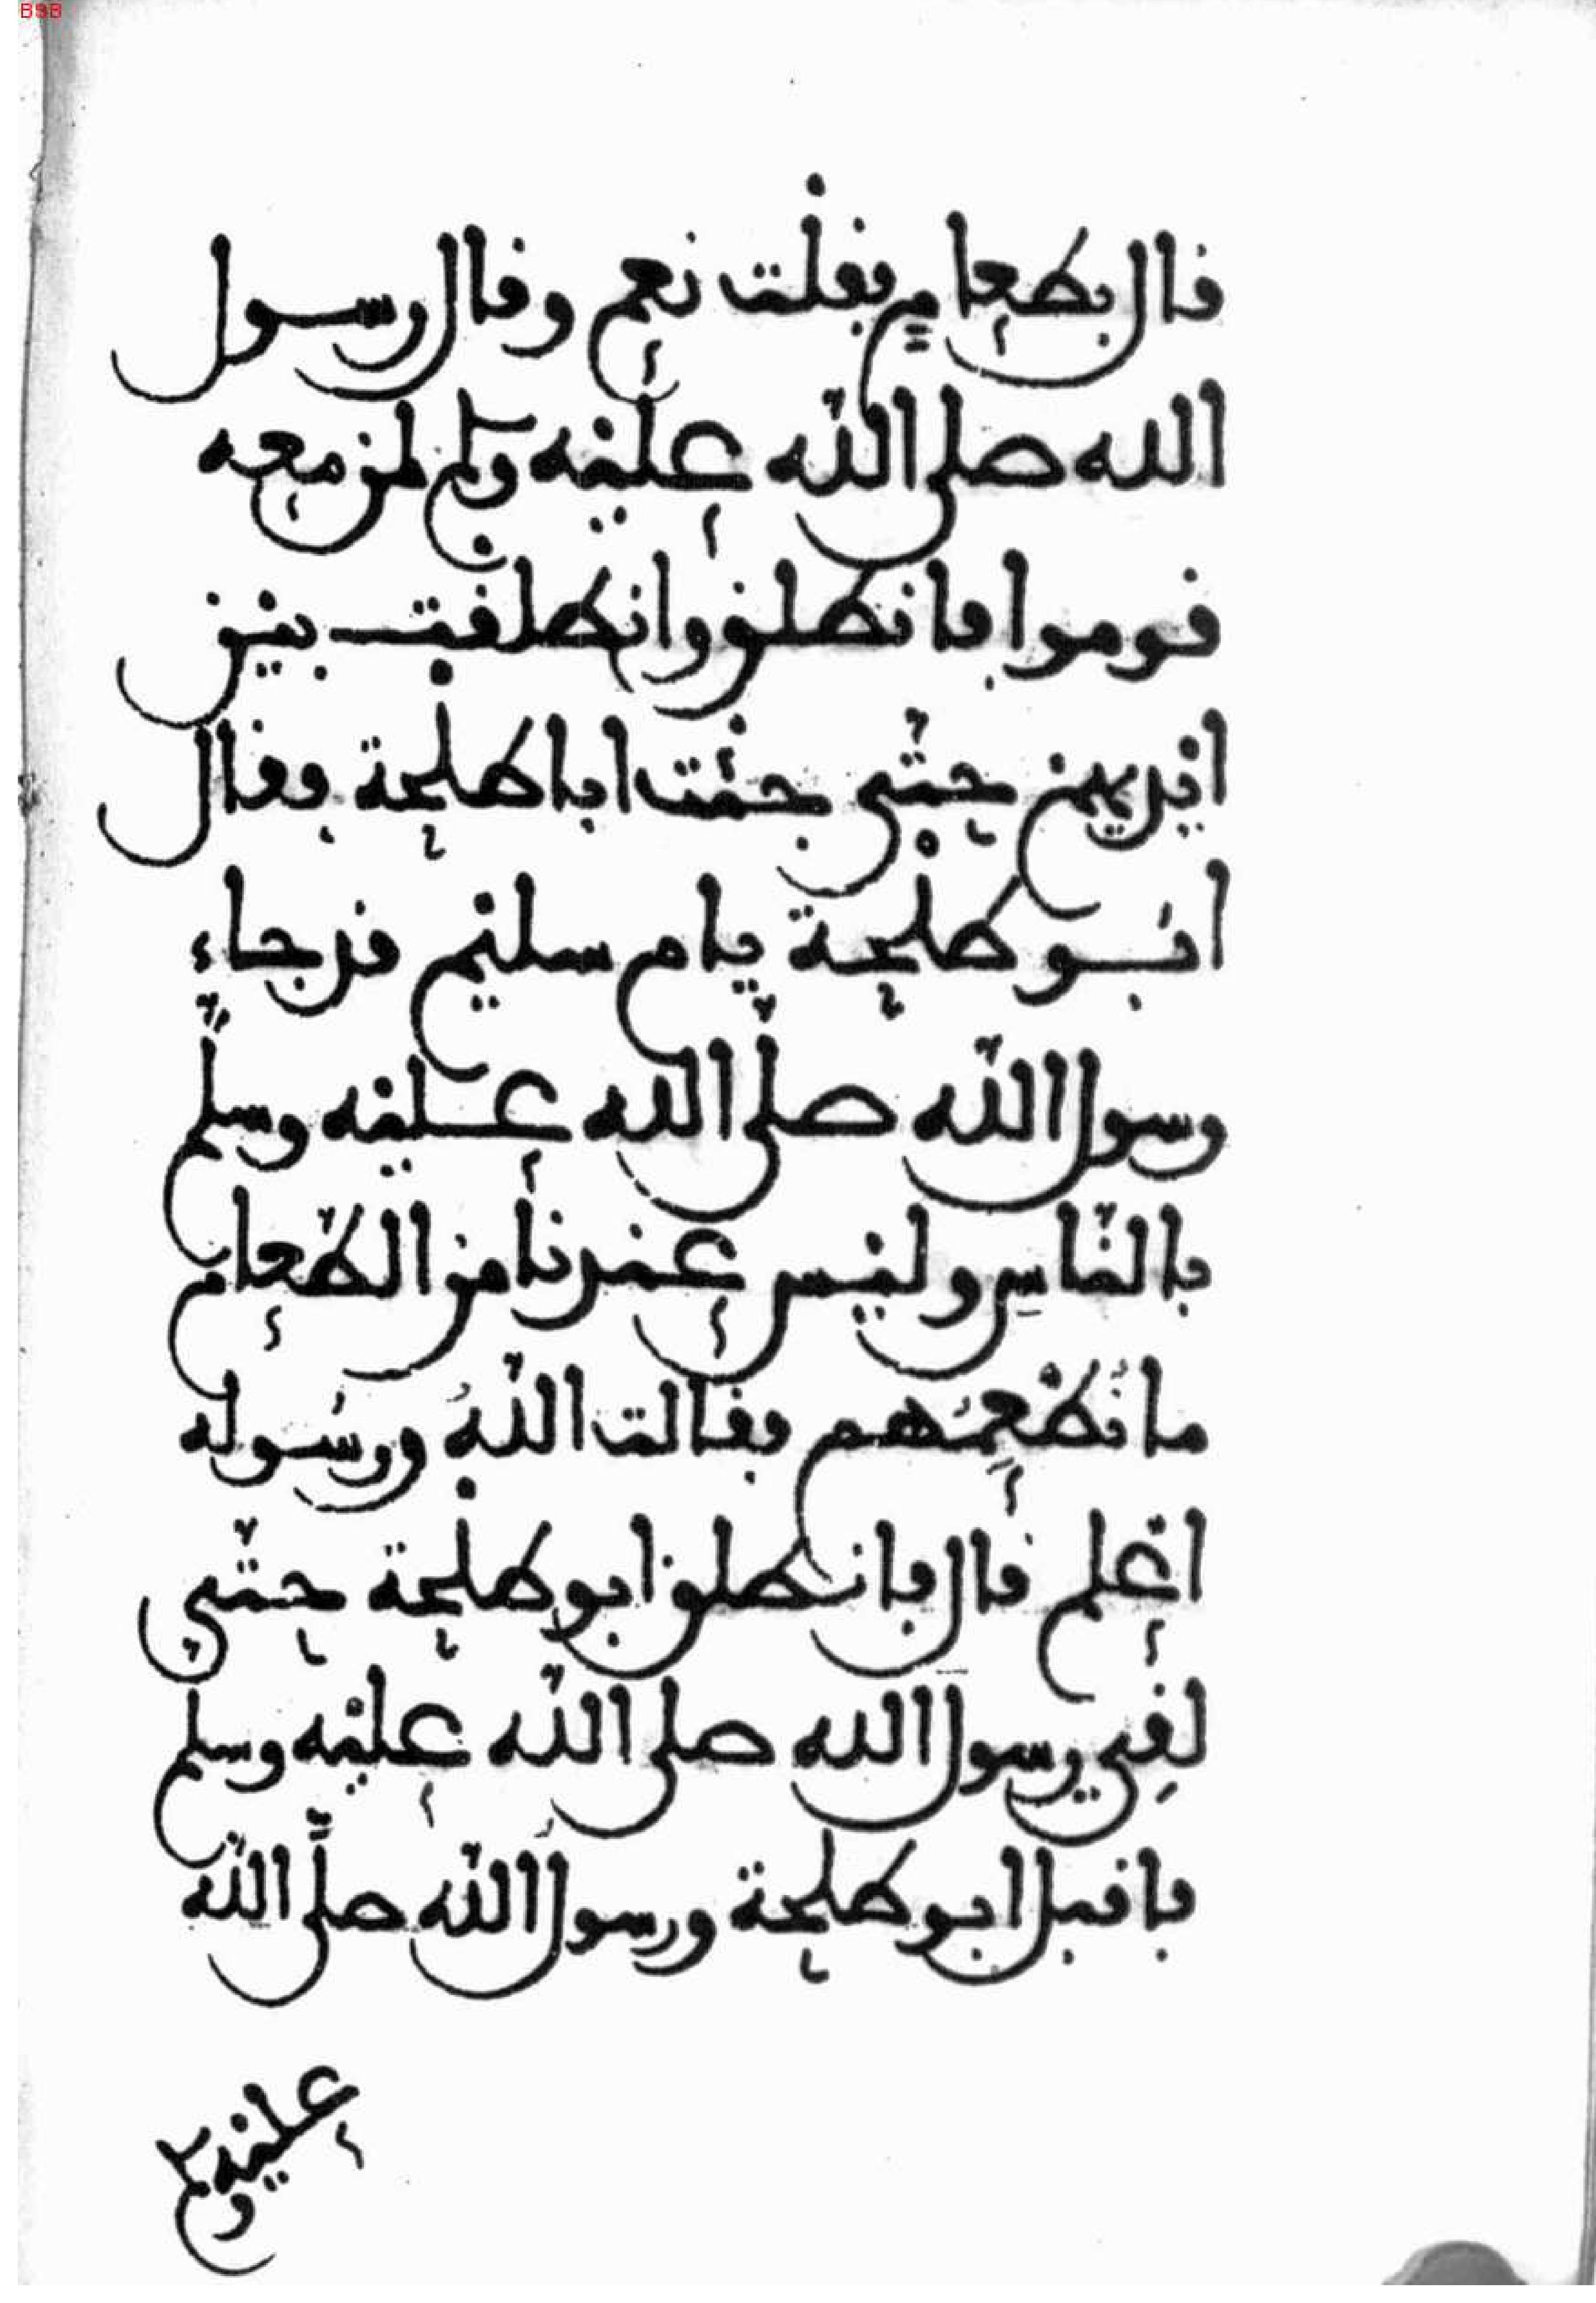 BSB
قال بطعامٍ فقلت نعم وقال رسول
الله صلى الله عليه وسلم لمن معه
قوموا فانطلق وانطلقت بين
ايديهم حتى جئت ابا طلحة فقال
ابو طلحة يام سليم قد جاء
رسول الله صلى الله عليه وسلم
بالناسِ وليس عندنا من الطعام
ما نُطْعِمُهم فقالت اللهُ ورسُوله
اعلم قال فانطلق ابو طلحة حتى
لقِي رسول الله صلى الله عليه وسلم
فاقبل ابو طلحة ورسول الله صلى الله
عليه وسلم